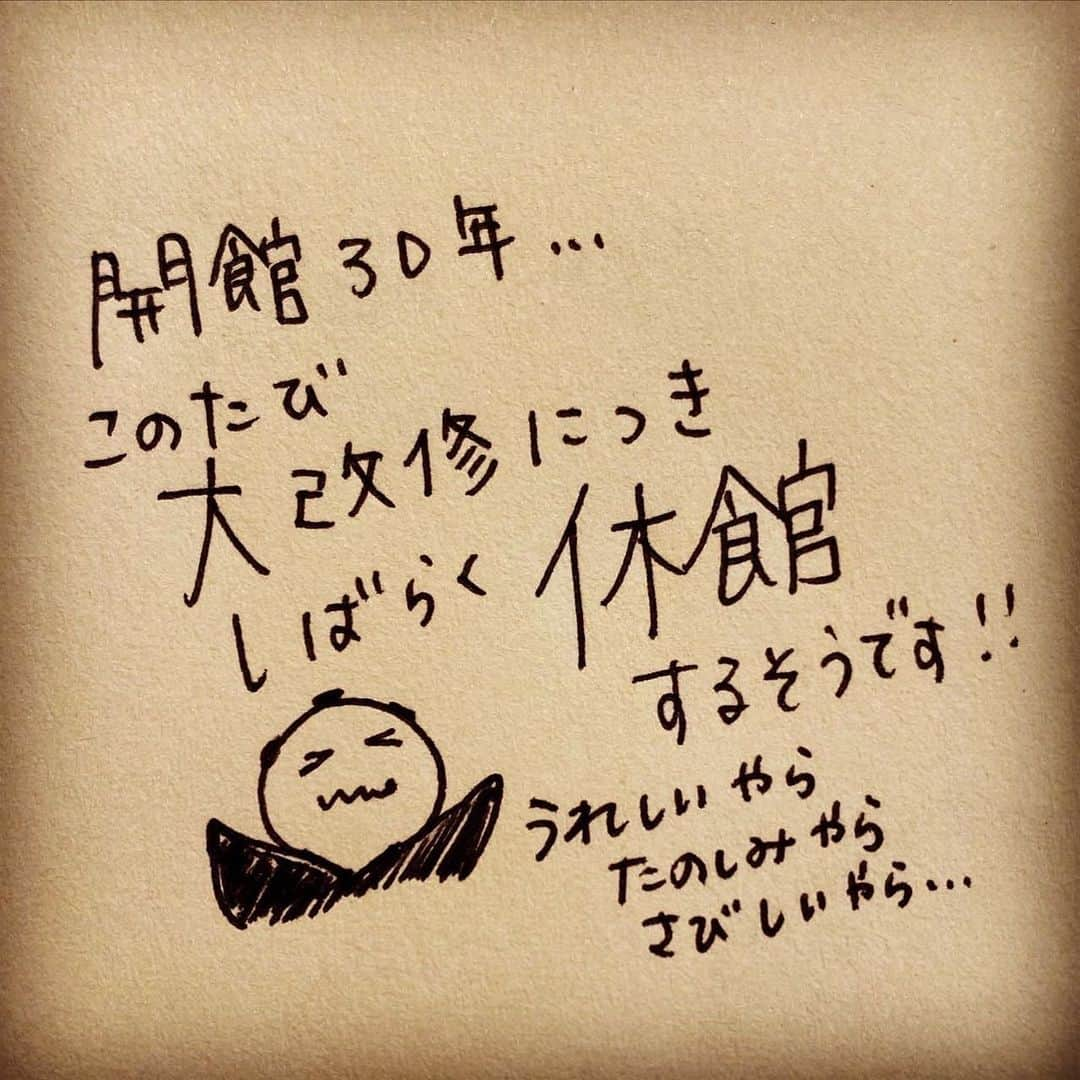 開館30年...
このたび
大改修につき
しばらく休館
するそうです!!
うれしいやら
たのしみやら
さびしいやら...